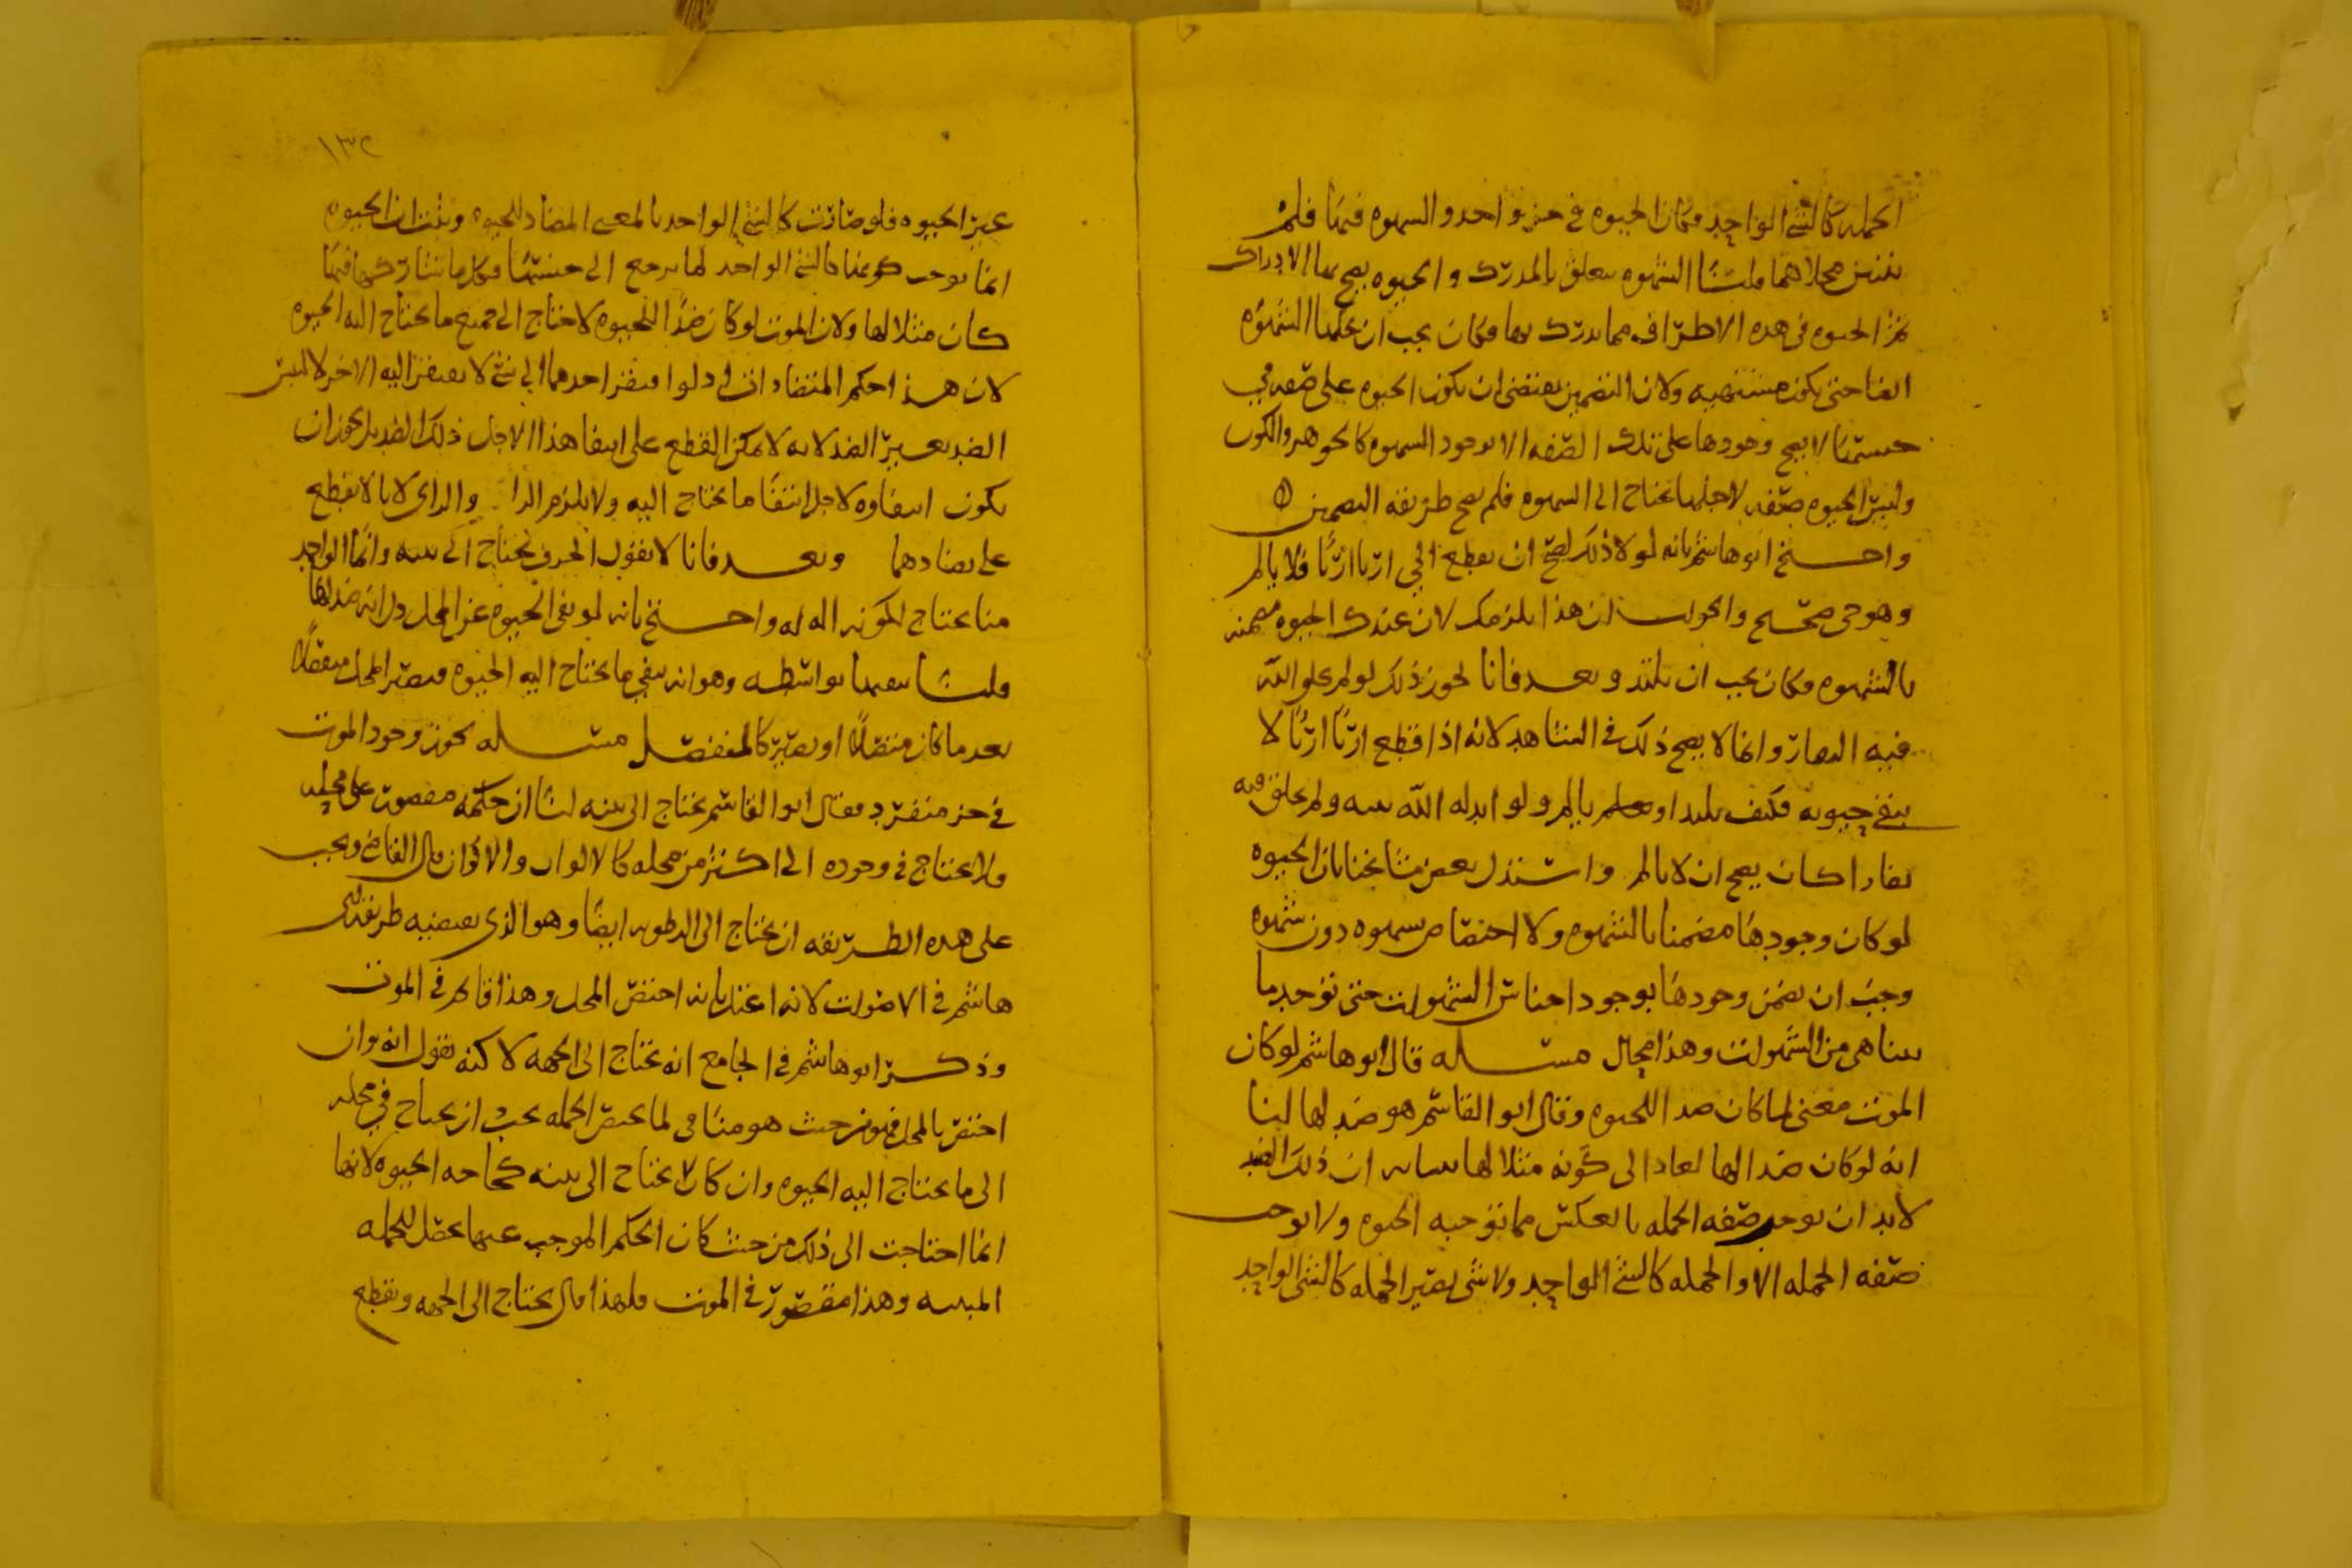 الجمله كالشي الواحد فكان الحيوه في جزو احد والشهوه فيها فلم
محلاهما قلنا الشهوه تتعلق بالمدرك والحيوه يصح بها الادراك
ثم الحيوه في هذه الاطراف مما يدرك بها فكان يجب ان تحلها الشهوه
ايضا حتى يكون مشتهيه ولان التضمين يقتضي ان يكون الحيوه على صفه في
جنسها لا يصح وجودها على تلك الصفه الا بوجود الشهوه كالجوهر والكون
وليس الحيوه صفه لاجلها تحتاج الى الشهوه فلم يصح طريقه التضمين
واحتج ابو هاشم بانه لولا ذلك لصح ان يقطع الحي اربا اربا فلا يالم
وهو حي صحيح والجواب ان هذا يلزمك لان عندك الحيوه مضمنه
بالشهوه فكان يجب ان يلتذ وبعد فانا نجوز ذلك لو لم يخلق الله
فيه النفار وانما لا يصح ذلك في الشاهد لانه اذا قطع اربا اربا لا
يبقى حيوته فكيف يلتذ او يالم ولو ابدله الله بنيه ولم يخلق فيه
نفارا كان يصح ان لا يالم واستدل بعض مشايخنا بان الحيوه
لو كان وجودها مضمنا بالشهوه ولا اختصاص بشهوه دون شهوه
وجب ان يضمن وجودها بوجود اجناس الشهوات حتى توجد ما
يتناهى من الشهوات وهذا محال مسئله قال ابو هاشم لو كان
الموت معنى لما كان ضدا للحيوه وقال ابو القاسم هو ضد لها لنا
انه لو كان ضدا لها لعاد الى كونه مثلا لها بيانه ان ذلك الضد
لا بد ان يوجب صفه الجمله بالعكس مما توجبه الحيوه ولا يوجب
صفه الجمله الا والجمله كالشي الواحد ولا شي يصير الجمله كالشي الواحد
١٣٢
غير الحيوه فلو صارت كالشي الواحد بالمعنى المضاد للحيوه وثبت ان الحيوه
انما يوجب كونها كالشي الواحد لما يرجع الى جنسها فكل ما شاركها فيها
كان مثلا لها ولان الموت لو كان ضدا للحيوه لاحتاج الى جميع ما يحتاج اليه الحيوه
لان هذا حكم المتضادات اذ لو افتقر احدهما الى شي لا يفتقر اليه الاخر لالتبس
الضد بغير الضد لانه لا يمكن القطع على انتفا هذا لاجل ذلك الضد بل يجوز ان
يكون انتفاوه لاجل انتفا ما يحتاج اليه ولا يلزم والراي لانا لا نقطع
على تضادهما وبعد فانا لا نقول الحرف يحتاج الى بنيه وانما الواحد
منا يحتاج لكونه اله له واحتج بانه لو نفى الحيوه عن المحل دل انه ضد لها
قلنا بواسطه وهو انه ينفي ما يحتاج اليه الحيوه فيصير المحل منفصلا
بعد ما كان متصلا او يصير كالمنفصل مسئله يجوز وجود الموت
في جز منفرد وقال ابو القاسم يحتاج الى بنيه لنا ان حكمه مقصور على محله
فلا يحتاج في وجوده الى اكثر من محله كالالوان والاكوان قال القاضي ويجب
على هذه الطريقه ان يحتاج الى الرطوبه ايضا وهو الذي يقتضيه طريقه ابي
هاشم في الاصوات لانه اعتل بانه اختص المحل وهذا قائم في الموت
وذكر ابو هاشم في الجامع انه يحتاج الى الجمله لا كنه نقول انه وان
اختص بالمحل فهو من حيث هو مناف لما يختص الجمله يجب ان يحتاج في محله
الى ما يحتاج اليه الحيوه وان كان لا يحتاج الى بنيه كحاجه الحيوه لانها
انما احتاجت الى ذلك من حيث كان الحكم الموجب عنها يحصل للجمله
المبنيه وهذا مقصور في الموت ولهذا قال يحتاج الى الجمله ويقطع